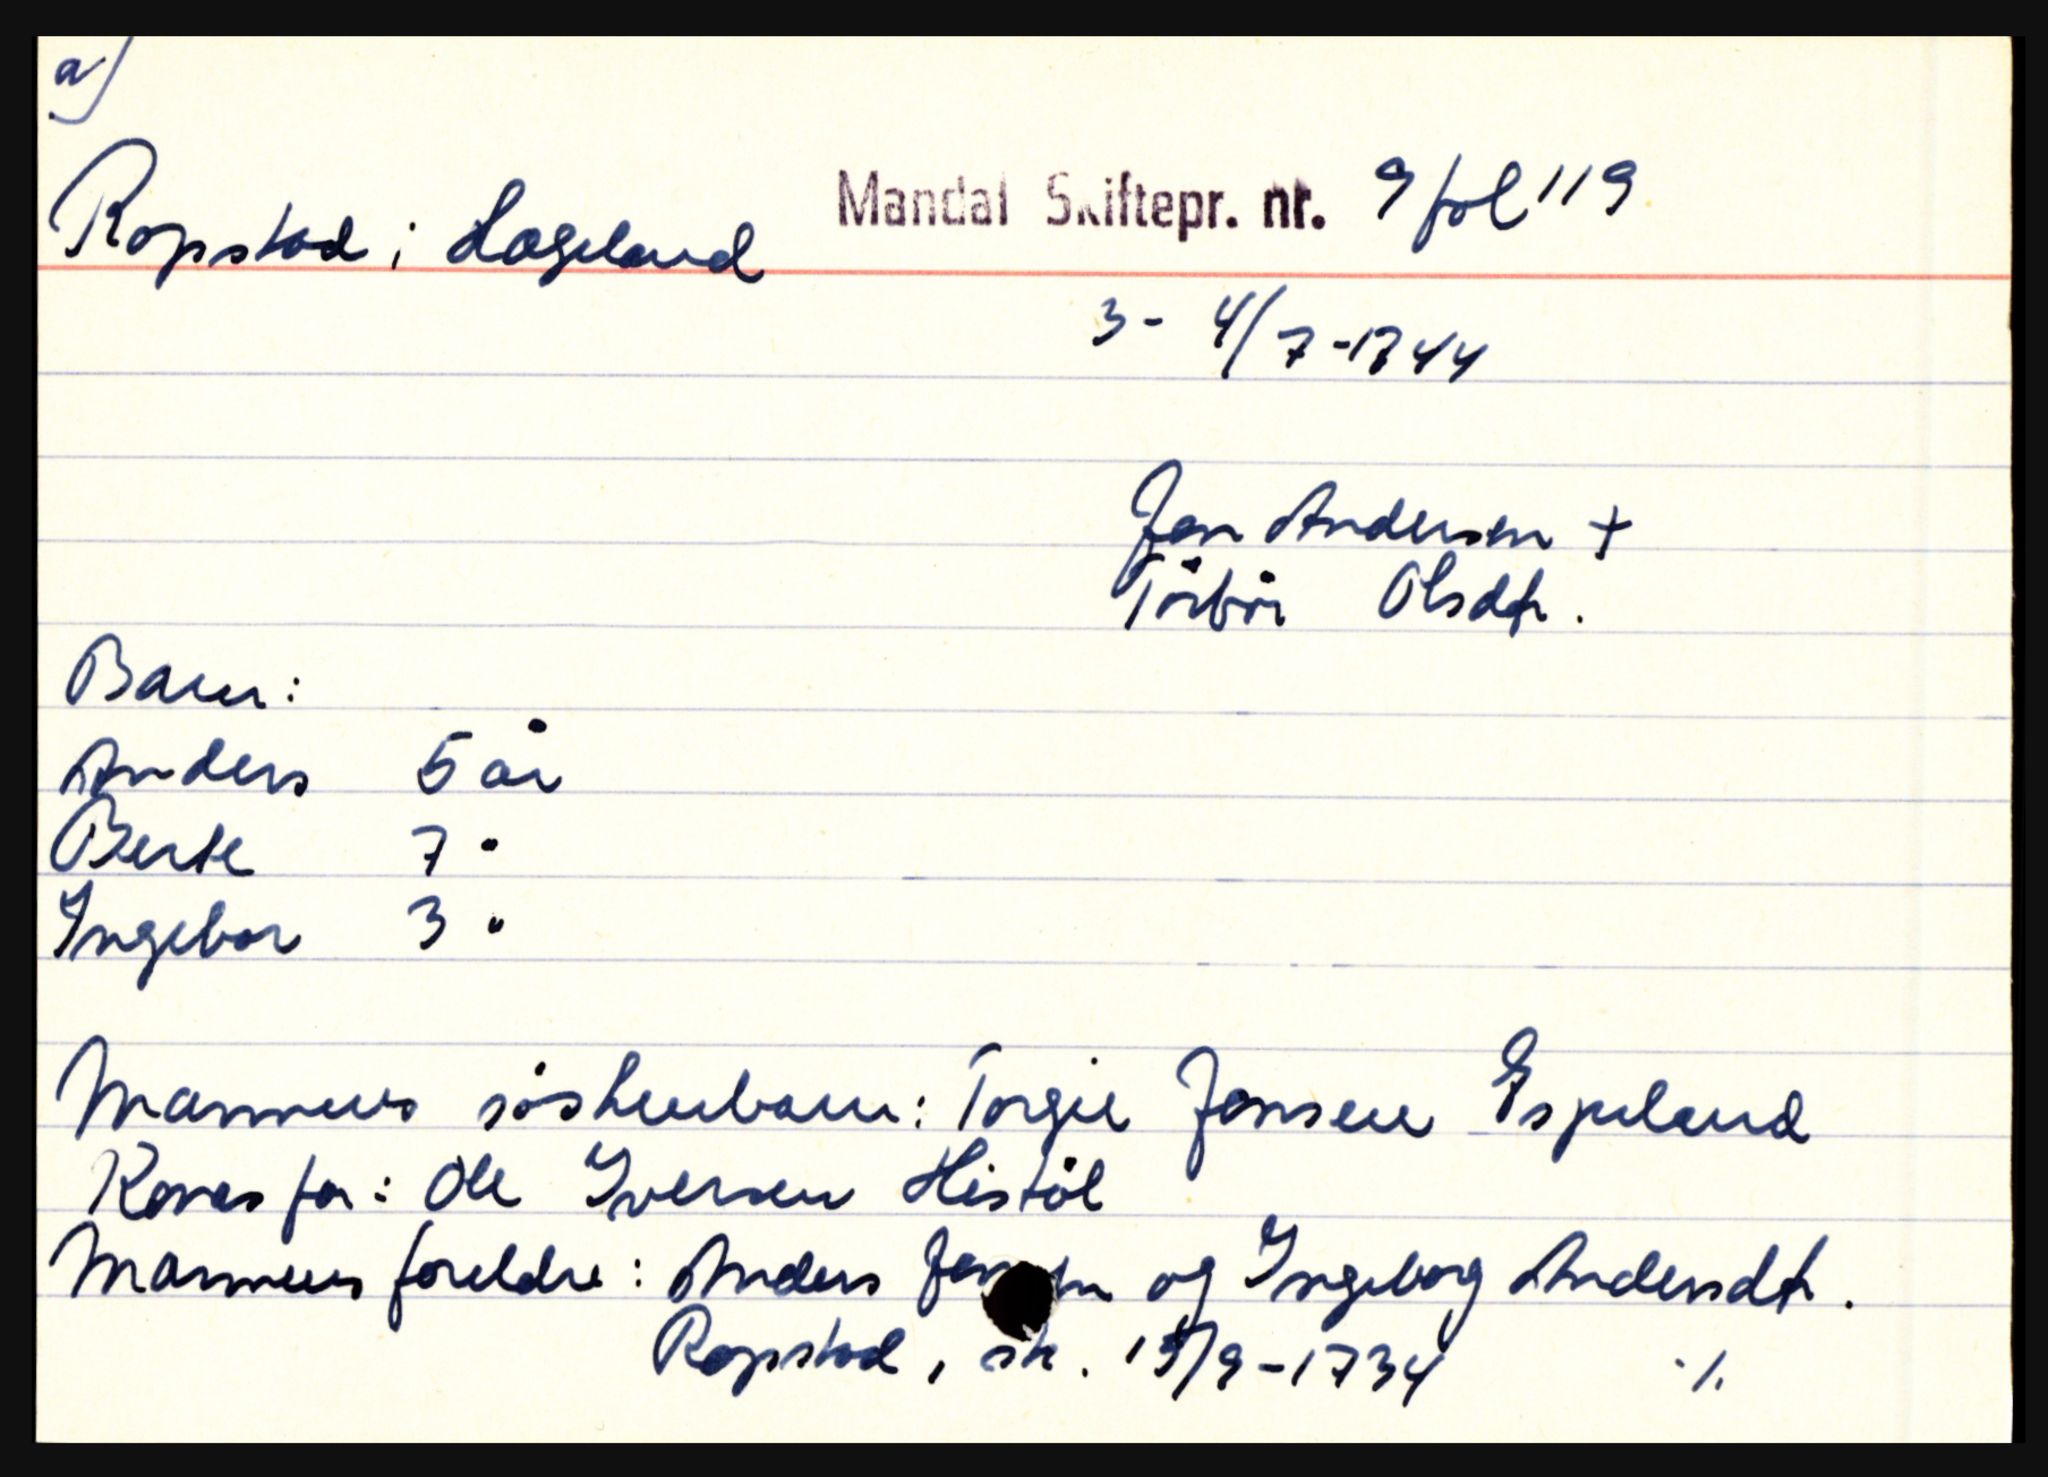 a)
Ropstad i Lægeland Mandal Skiftepr. nr. 9 fol 119
3- 4/7-1744
Jon Andersen +
Törbör Olsdtr.
Barn:
Anders 5 år
Berte 7 "
Ingebor 3 "
Mannens söskenbarn: Torgie Jonsen Espeland
Kones far: Ole Iversen Histöl
Mannens foreldre: Anders Jonsen og Ingeborg Andersdtr.
Ropstad, sk. 15/9-1734 ./.